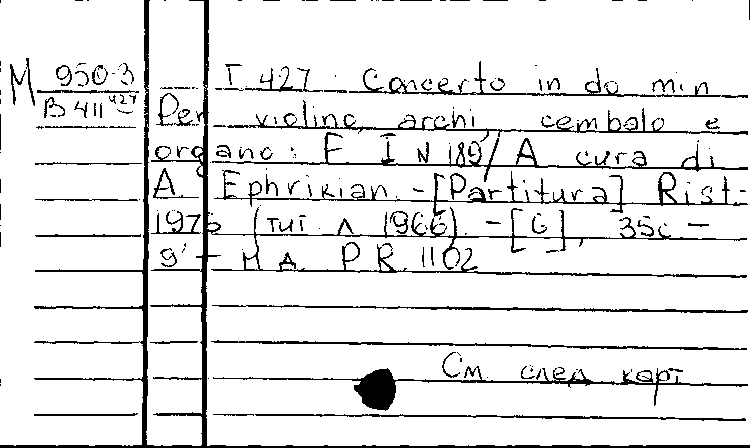 M 950-3
B 411 427
T. 427. Concerto in do min
Per violino, archi, cembalo e
organo: F I N 189/ A cura di
A. Ephrikian. - [Partitura] Rist.
1975 (тит л 1966). - [6], 35c -
9' - н д. P. R. 1102
См след карт